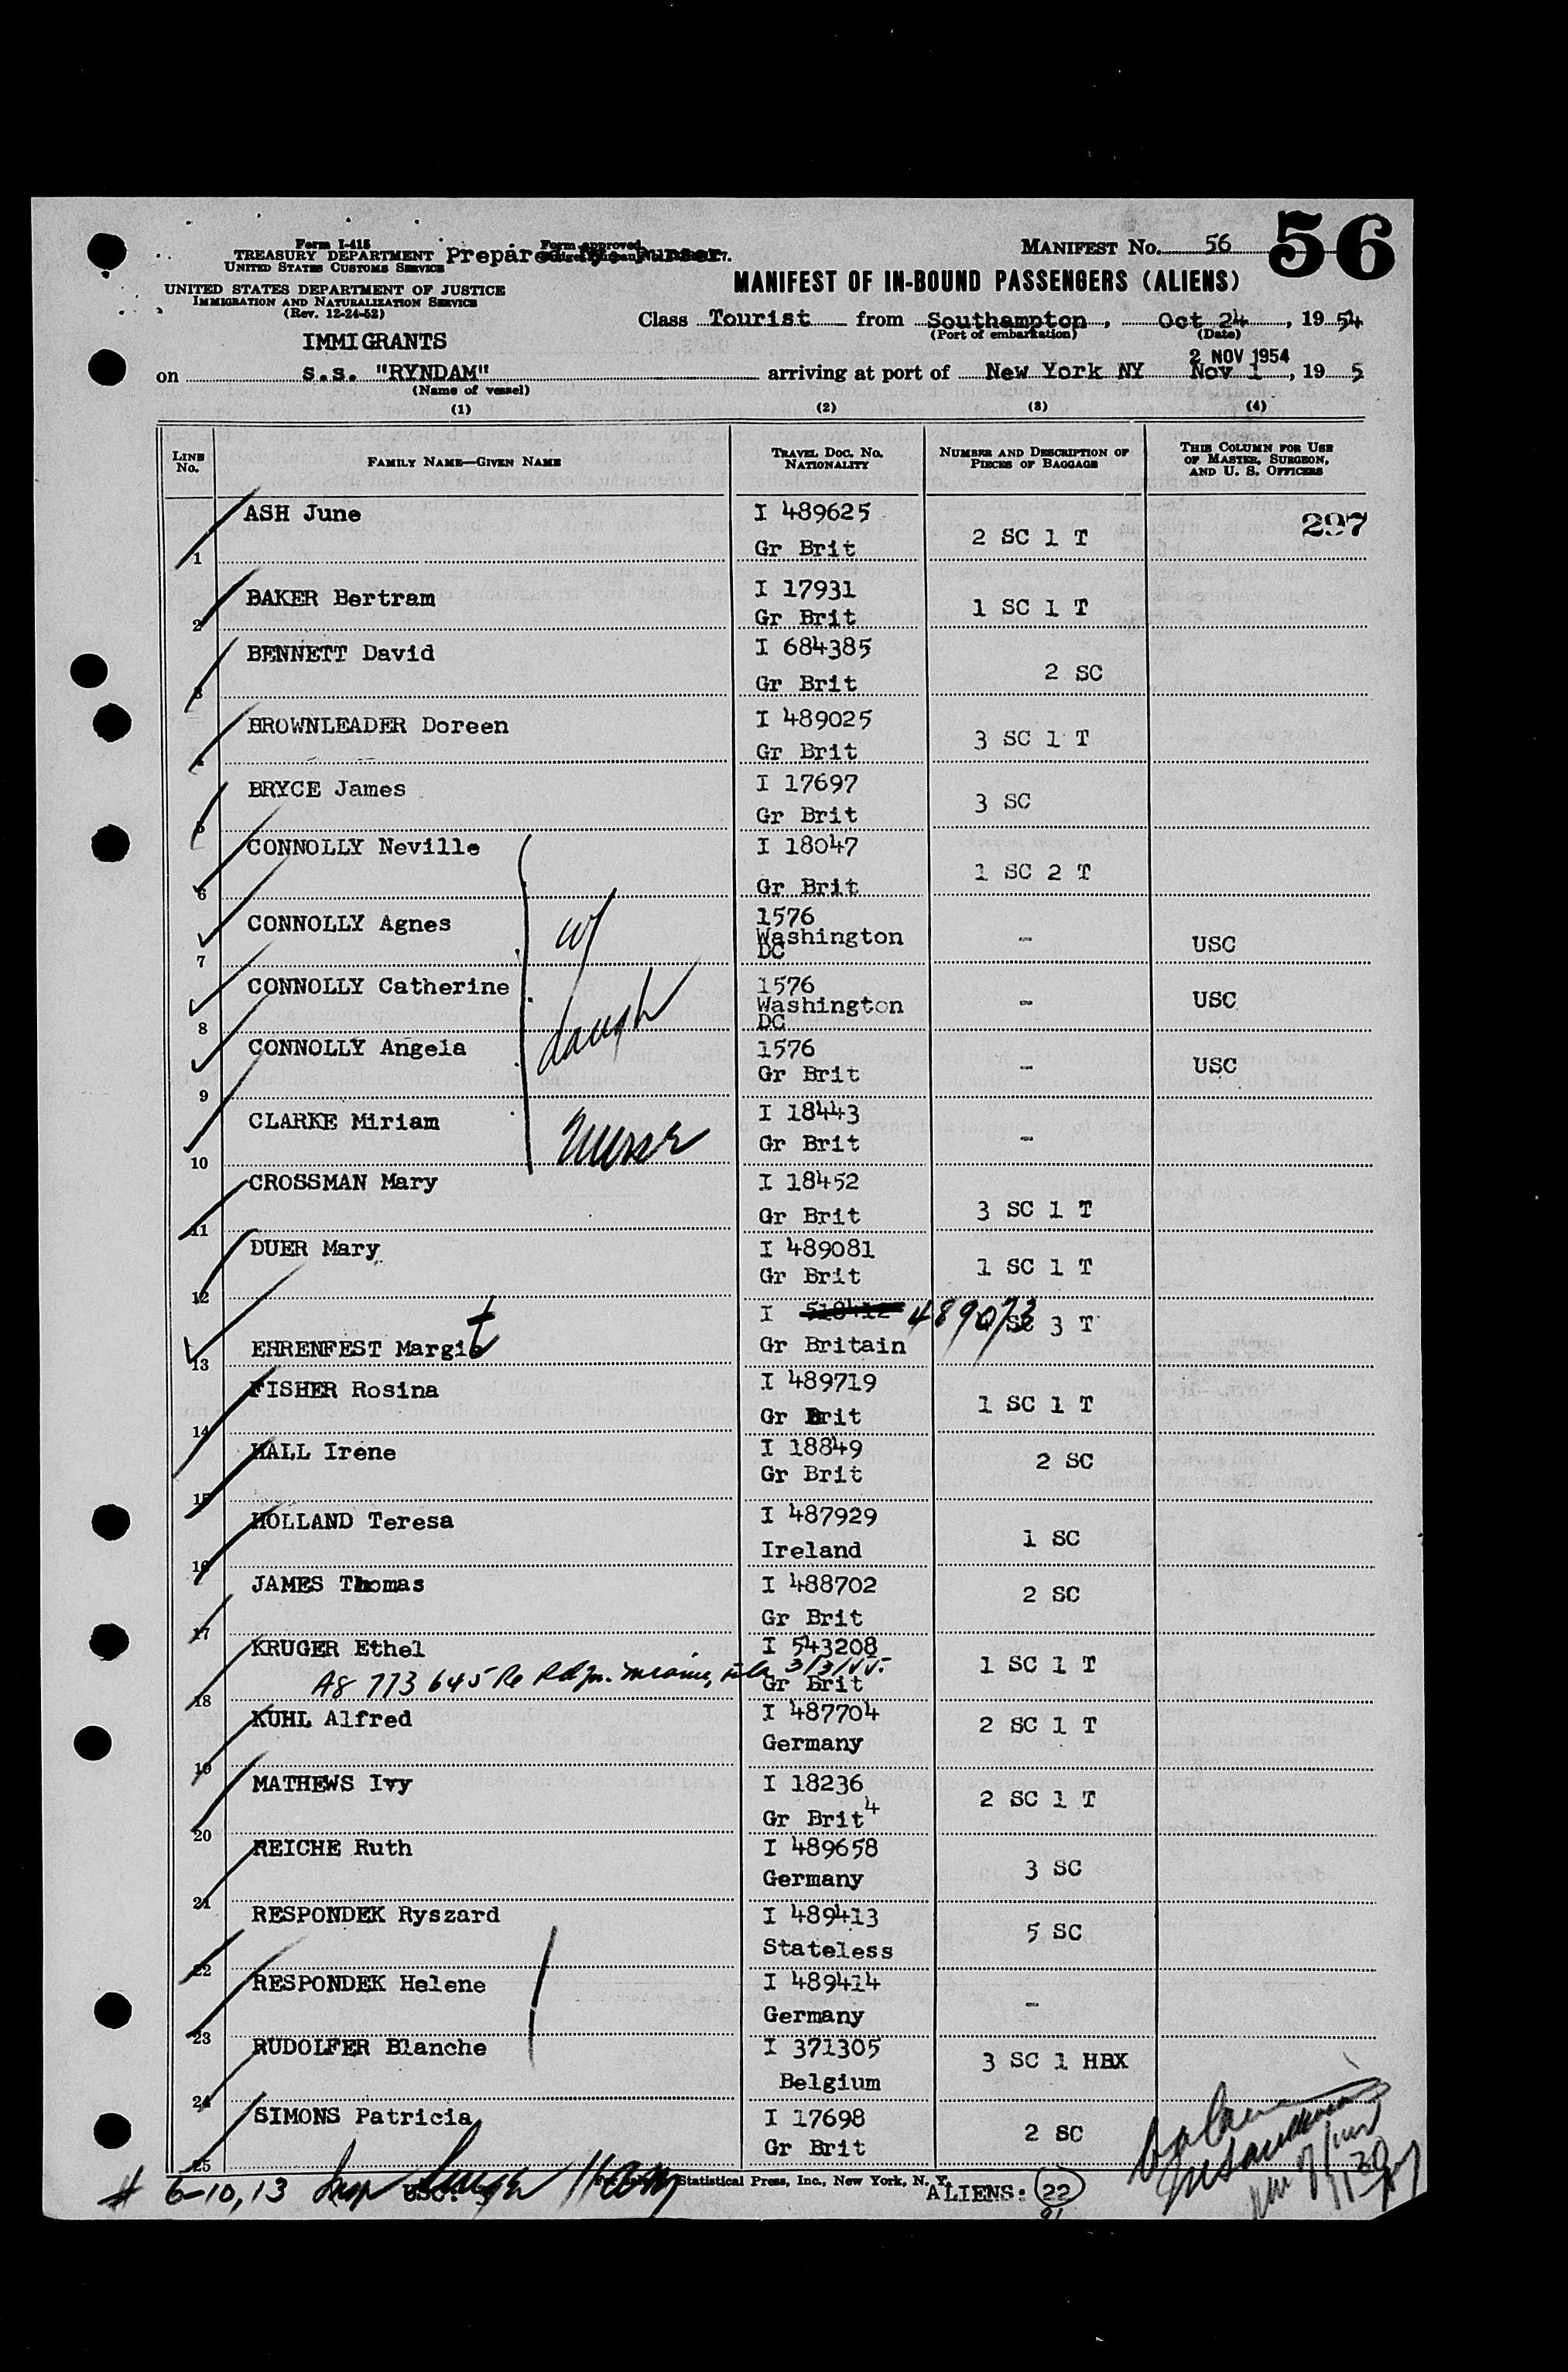 56
Form I-415
TREASURY DEPARTMENT
UNITED STATES CUSTOMS SERVICE
Form approved
MANIFEST NO. 56
UNITED STATES DEPARTMENT OF JUSTICE
IMMIGRATION AND NATURALIZATION SERVICE
(Rev. 12-24-52)
MANIFEST OF IN-BOUND PASSENGERS (ALIENS)
Class Tourist from Southampton, Oct 24, 1954
(Port of embarkation) (Date)
IMMIGRANTS
2 NOV 1954
on s.s. "RYNDAM" arriving at port of New York NY Nov 1, 19 5
(Name of vessel)
(1) (2) (3) (4)
LINE No. FAMILY NAME—GIVEN NAME TRAVEL DOC. NO. NATIONALITY NUMBER AND DESCRIPTION OF PIECES OF BAGGAGE THIS COLUMN FOR USE OF MASTER, SURGEON, AND U. S. OFFICERS
297
1 ASH June I 489625 Gr Brit 2 SC 1 T
2 BAKER Bertram I 17931 Gr Brit 1 SC 1 T
3 BENNETT David I 684385 Gr Brit 2 SC
4 BROWNLEADER Doreen I 489025 Gr Brit 3 SC 1 T
5 BRYCE James I 17697 Gr Brit 3 SC
6 CONNOLLY Neville I 18047 Gr Brit 1 SC 2 T
7 CONNOLLY Agnes w/ 1576 Washington DC - USC
8 CONNOLLY Catherine 1576 Washington DC - USC
daugh
9 CONNOLLY Angela 1576 Gr Brit - USC
10 CLARKE Miriam Nurse I 18443 Gr Brit -
11 CROSSMAN Mary I 18452 Gr Brit 3 SC 1 T
12 DUER Mary I 489081 Gr Brit 1 SC 1 T
13 EHRENFEST Margit I 518412 489073 Gr Britain SC 3 T
14 FISHER Rosina I 489719 Gr Brit 1 SC 1 T
15 HALL Irene I 18849 Gr Brit 2 SC
16 HOLLAND Teresa I 487929 Ireland 1 SC
17 JAMES Thomas I 488702 Gr Brit 2 SC
18 KRUGER Ethel I 543208 Gr Brit 1 SC 1 T
A8 773 645 Re
19 KUHL Alfred I 487704 Germany 2 SC 1 T
20 MATHEWS Ivy I 18236 Gr Brit 4 2 SC 1 T
21 REICHE Ruth I 489658 Germany 3 SC
22 RESPONDEK Ryszard I 489413 Stateless 5 SC
23 RESPONDEK Helene I 489414 Germany -
24 RUDOLFER Blanche I 371305 Belgium 3 SC 1 HBX
25 SIMONS Patricia I 17698 Gr Brit 2 SC
Statistical Press, Inc., New York, N. Y.
# 6-10, 13 USC:
ALIENS: 22